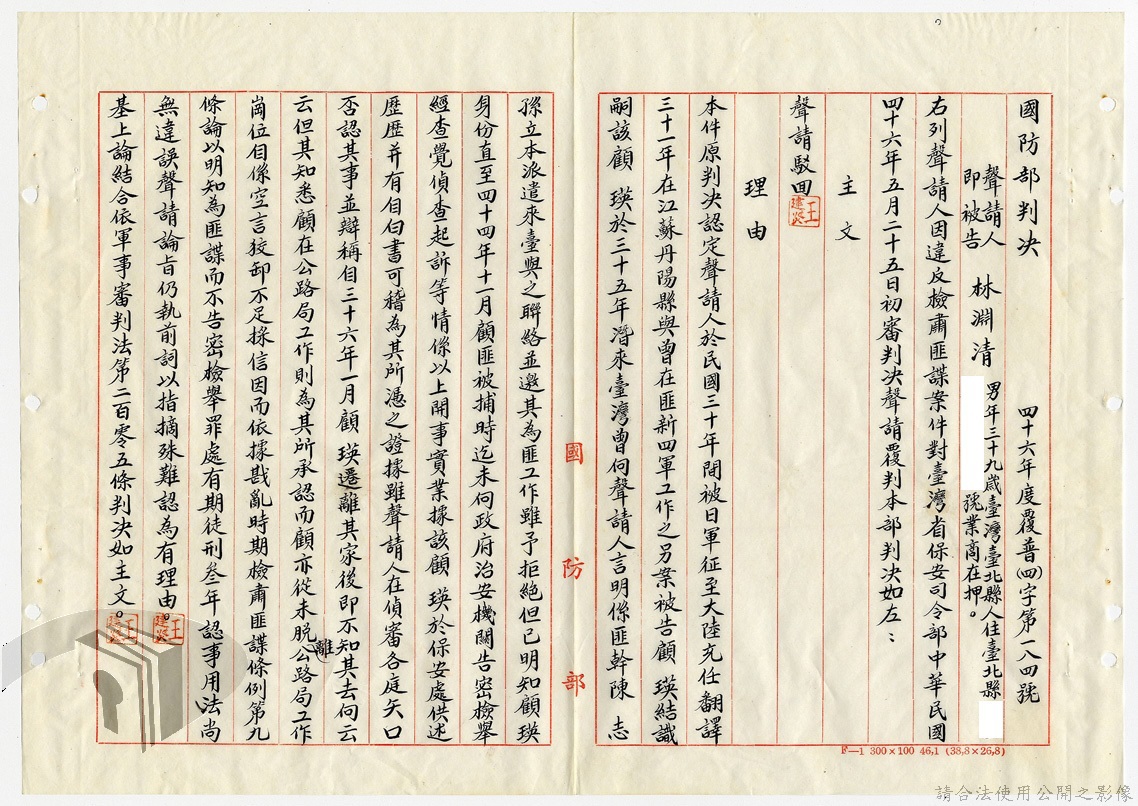 國防部判决
四十六年度覆普(四)字第一八四號
聲請人
即被告
林淵清
男年三十九歲臺灣臺北縣人住臺北縣
號業商在押。
右列聲請人因違反檢肅匪諜案件對臺灣省保安司令部中華民國
四十六年五月二十五日初審判决聲請覆判本部判决如左：
主文
聲請駁回
理由
本件原判决認定聲請人於民國三十年間被日軍征至大陸充任翻譯
三十一年在江蘇丹陽縣與曾在匪新四軍工作之另案被告顧 瑛結識
嗣該顧 瑛於三十五年潛來臺灣曾向聲請人言明係匪幹陳 志
國防部
孫立本派遣來臺與之聯絡並邀其為匪工作雖予拒絕但已明知顧瑛
身份直至四十四年十一月顧匪被捕時迄未向政府治安機關告密檢舉
經查覺偵查起訴等情係以上開事實業據該顧 瑛於保安處供述
歷歷并有自白書可稽為其所憑之證據雖聲請人在偵審各庭矢口
否認其事並辯稱自三十六年一月顧 瑛遷離其家後即不知其去向云
云但其知悉顧在公路局工作則為其所承認而顧亦從未脫離公路局工作
崗位自係空言狡卸不足採信因而依據戡亂時期檢肅匪諜條例第九
條論以明知為匪諜而不告密檢舉罪處有期徒刑叁年認事用法尚
無違誤聲請論旨仍執前詞以指摘殊難認為有理由。
基上論結合依軍事審判法第二百零五條判决如主文。
F—1 300×100 46,1 (38,8×26,8)
請合法使用公開之影像